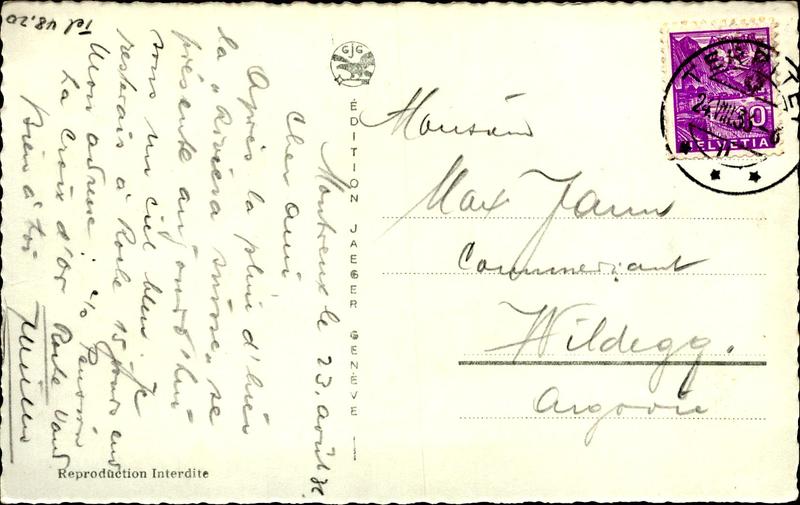 Tel 48.20
Montreux le 23. août 3
Cher ami
Après la pluie d'hier
la "Riviera suisse" se
présente aujourd'hui
sous un ciel bleu. Je
resterais à Rolle 15 jours
Mon adresse: c/o Pension
La Croix d'or Rolle Vaud
Bien à toi
Müller
Reproduction Interdite
GJG
ÉDITION JAEGER GENÈVE
Monsieur
Max Jann
Commerçant
Wildegg.
Argovie
24.VIII.3
10
HELVETIA